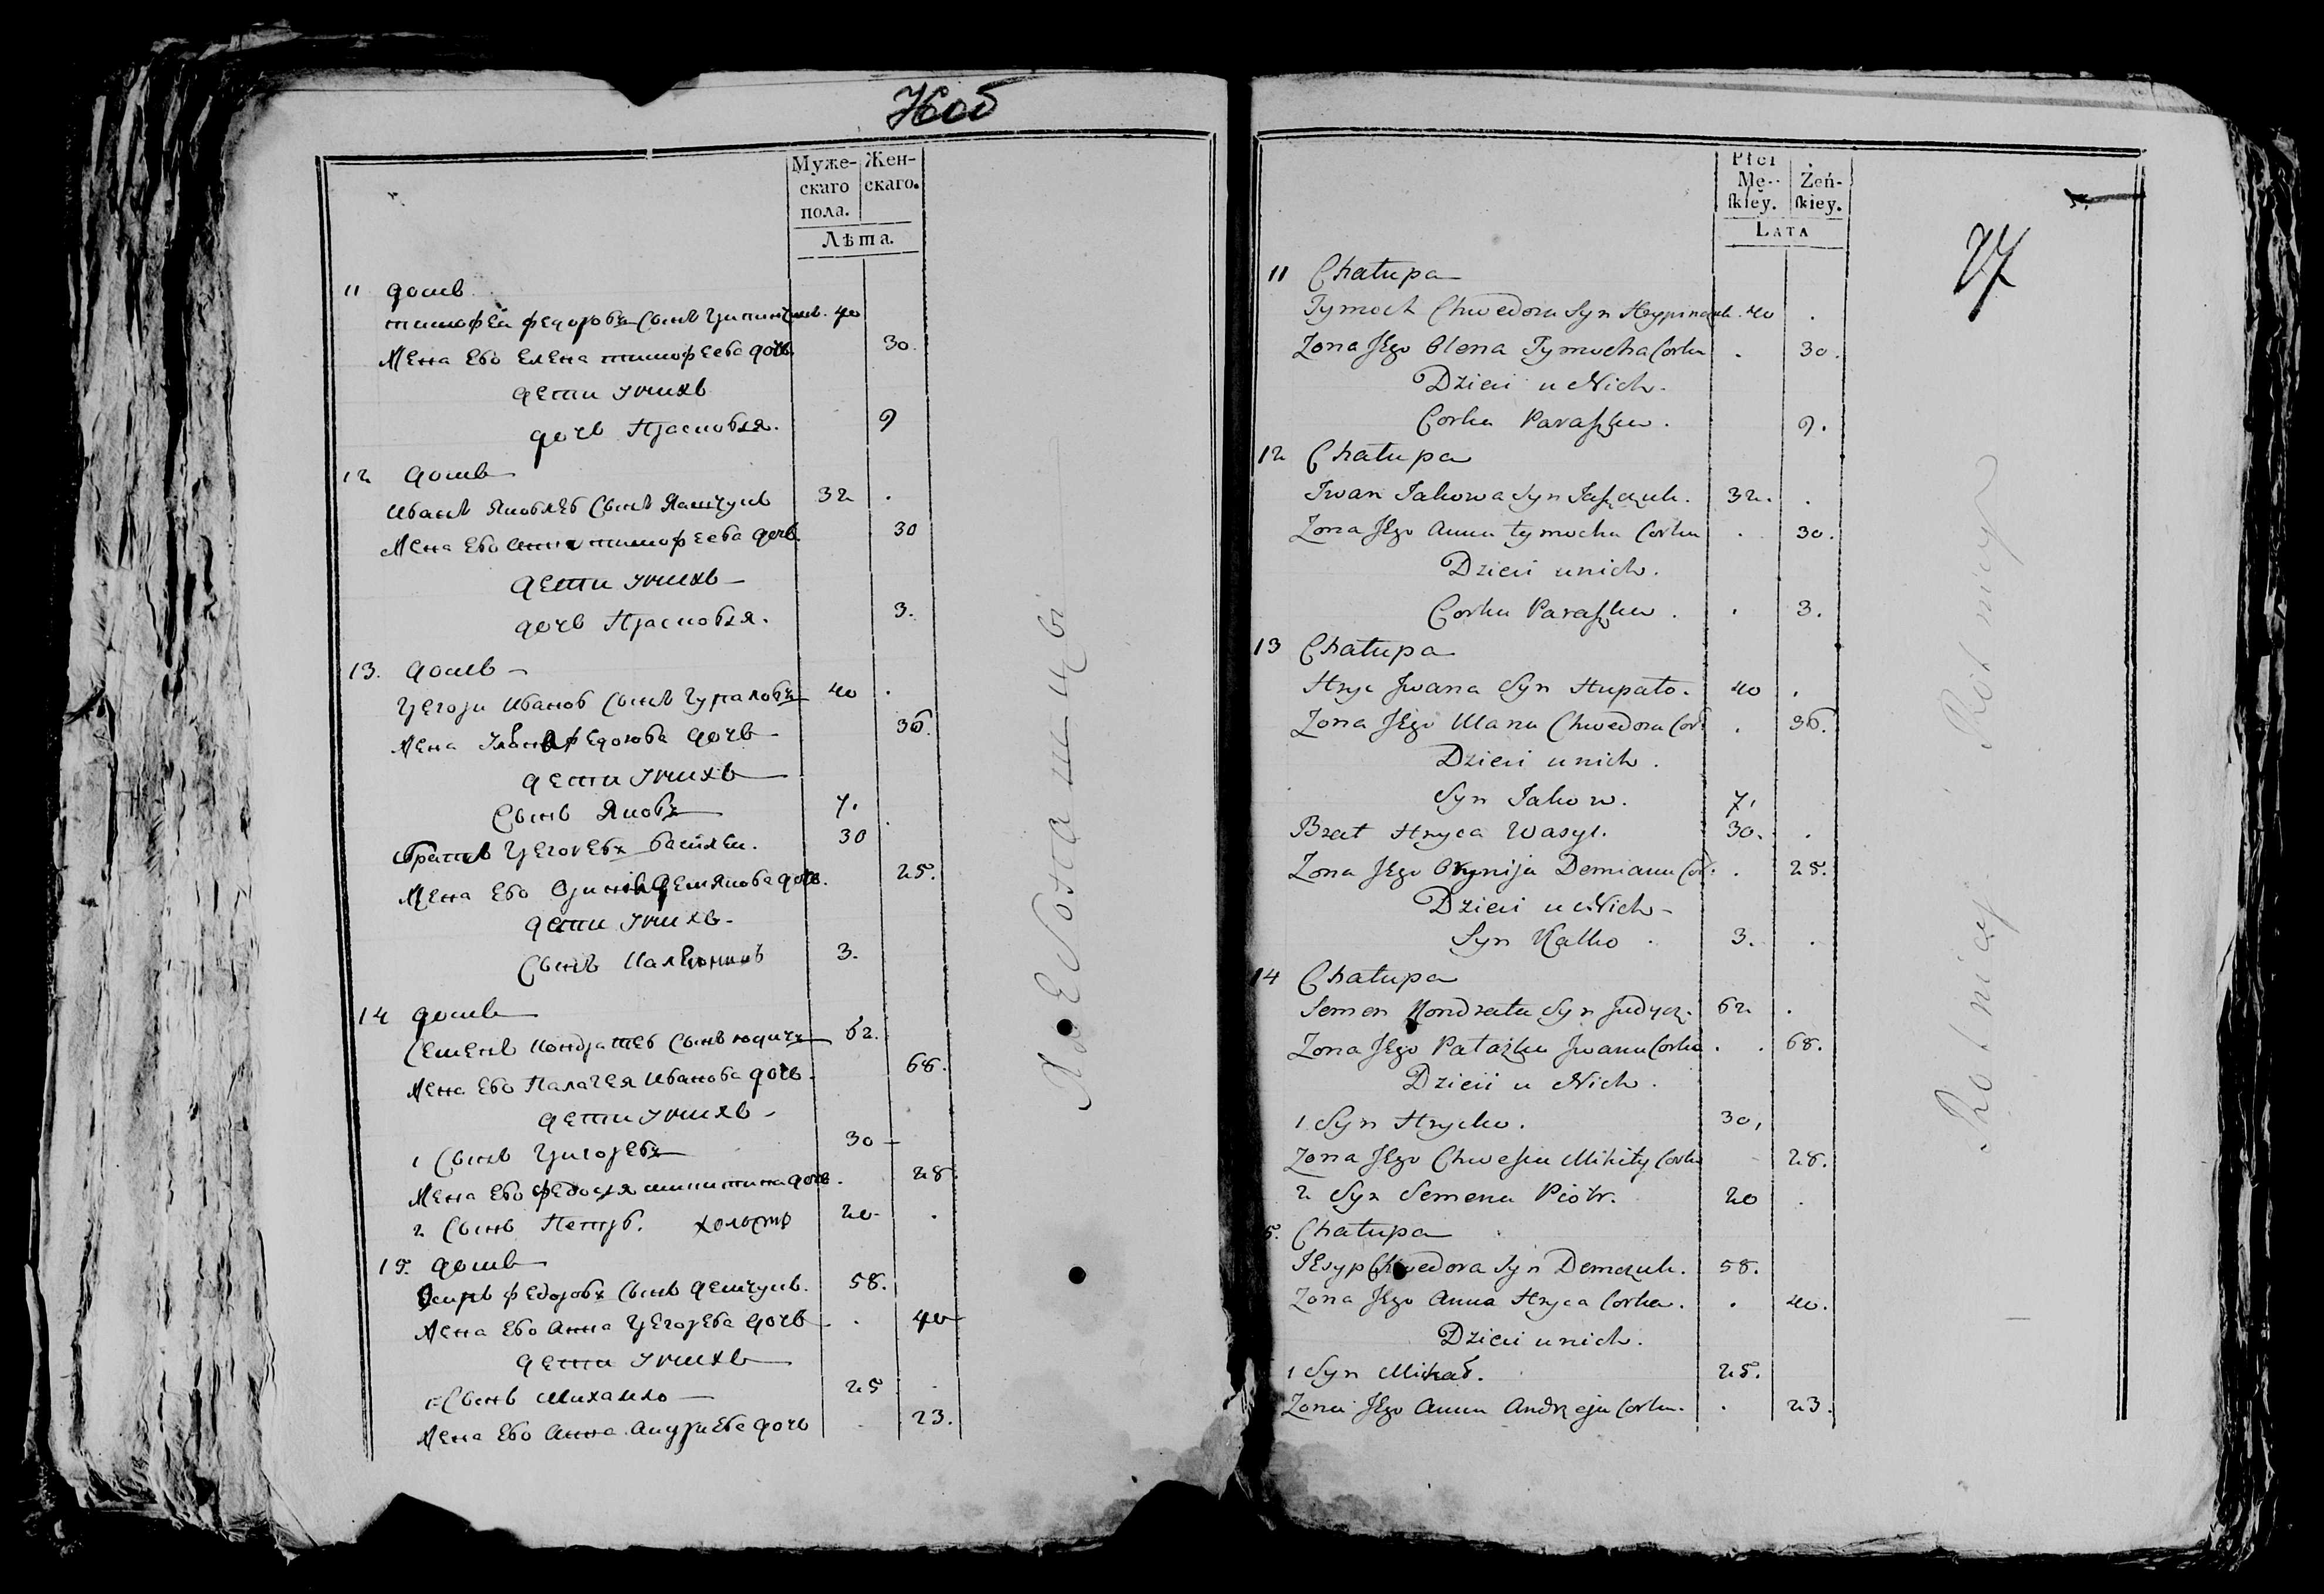 Ноб
Муже-
скаго
пола.
Жен-
скаго.
Лѣта.
11 домъ
тимофей федоровъ Сынъ 40
Жена Ево Елена тимофеева дочь 30.
дети уних
дочь Прасковья. 9
12 домъ
Иванъ Яковлев Сынъ Яшчукъ 32 .
Жена Ево анна тимофеева дочь 30
дети унихъ
дочь Прасковья. 3.
13. домъ
Григори Иванов Сынъ 40 .
Жена федорова дочь 36.
дети унихъ
Сынъ Яковъ 7.
братъ Василеи. 30
Жена Ево дочь. 25.
дети унихъ
Сынъ 3.
14 домъ
Семенъ Кондратев Сынъ юдичъ 62.
Жена Ево Палагея Иванова дочь. 68.
дети унихъ
1 Сынъ Григорей 30
Жена Ево Федосья микитина дочь. 28.
2 Сынъ Петръ. холостъ 20 .
15. домъ
Осипъ федоровъ Сынъ демчукъ. 58.
Жена Ево Анна Григорева дочь . 40
дети унихъ
1 Сынъ Михаило 25
Жена Ево Анна Андриева дочь . 23.
Płci
Mę-
skiey.
Zeń-
skiey.
LATA
27
11 Chałupa
Tymoch Chwedora Syn Hrypinczuk. 40 .
Zona JEgo Olena Tymocha Corka . 30.
Dzieci u Nich.
Corka Paraszka. 9.
12 Chałupa
Iwan Jakowa Syn Jaszczuk. 32. .
Zona JEgo Anna tymocha Corka . 30.
Dzieci unich.
Corka Paraszka . . 3.
13 Chałupa
Hryc Jwana Syn Hupało. 40 .
Zona JEgo Ulana Chwedora Cor: . 36.
Dzieci unich.
Syn Jakow. 7,
Brat Hryca Wasyl. 30. .
Zona JEgo Orynija Demiana Cor: . 25.
Dzieci u Nich
Syn Kalko . 3. .
14 Chałupa
Semen Kondrata Syn Judycz. 62 .
Zona JEgo Pałaszka Jwana Corka . . 68.
Dzieci u Nich.
1. Syn Hrycko. 30,
Zona JEgo Chweska Mikity Corka 28.
2 Syn Semena Piotr. 20 .
5. Chałupa
JEsyp Chwedora Syn Demczuk. 58.
Zona JEgo Anna Hryca Corka. . 40.
Dzieci unich.
1 Syn Michał. 25.
Zona JEgo Anna Andrzeja Corka. . 23.
Rolnicy
Rolnicy